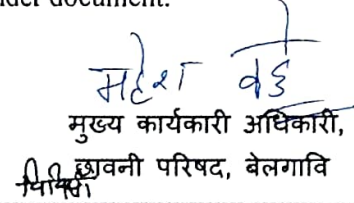 nder document.
मुख्य कार्यकारी अधिकारी,
छावनी परिषद, बेलगावि